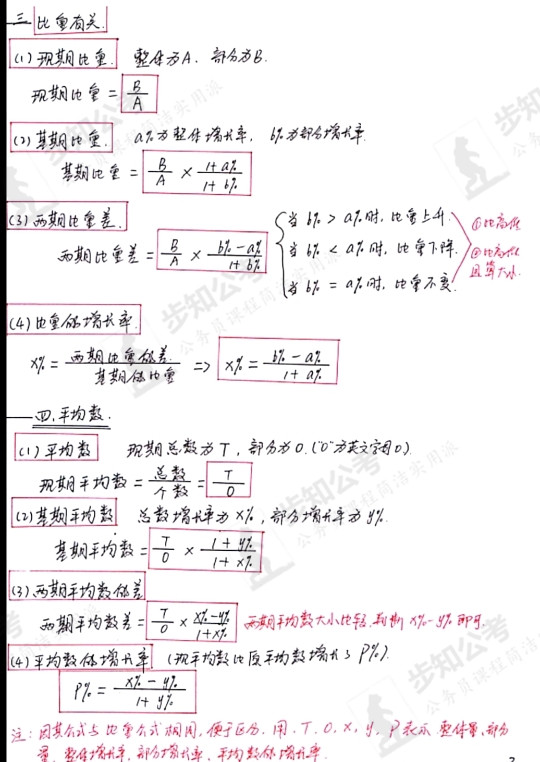 三 比重有关.
(1) 现期比重. 整体为A. 部分为B.
现期比重 = B/A
(2) 基期比重. a%为整体增长率, b%为部分增长率.
基期比重 = B/A × (1+a%)/(1+b%)
(3) 两期比重差.
两期比重差 = B/A × (b%-a%)/(1+b%)
当 b% > a% 时, 比重上升.
当 b% < a% 时, 比重下降.
当 b% = a% 时, 比重不变.
①比高低
②比高低
且算大小.
(4) 比重的增长率.
x% = 两期比重的差/基期的比重 => x% = (b%-a%)/(1+a%)
四. 平均数.
(1) 平均数 现期总数为T, 部分为O. ("O"为英文字母O)
现期平均数 = 总数/个数 = T/O
(2) 基期平均数 总数增长率为x%, 部分增长率为y%.
基期平均数 = T/O × (1+y%)/(1+x%)
(3) 两期平均数的差
两期平均数差 = T/O × (x%-y%)/(1+x%) 两期平均数大小比较, 判断 x%-y% 即可.
(4) 平均数的增长率 (现平均数比原平均数增长了P%).
P% = (x%-y%)/(1+y%)
注: 因其公式与比重公式相同, 便于区分. 用. T. O. x. y. P表示 整体量, 部分
量, 整体增长率, 部分增长率, 平均数的增长率.
步知公考
公务员课程简洁实用派